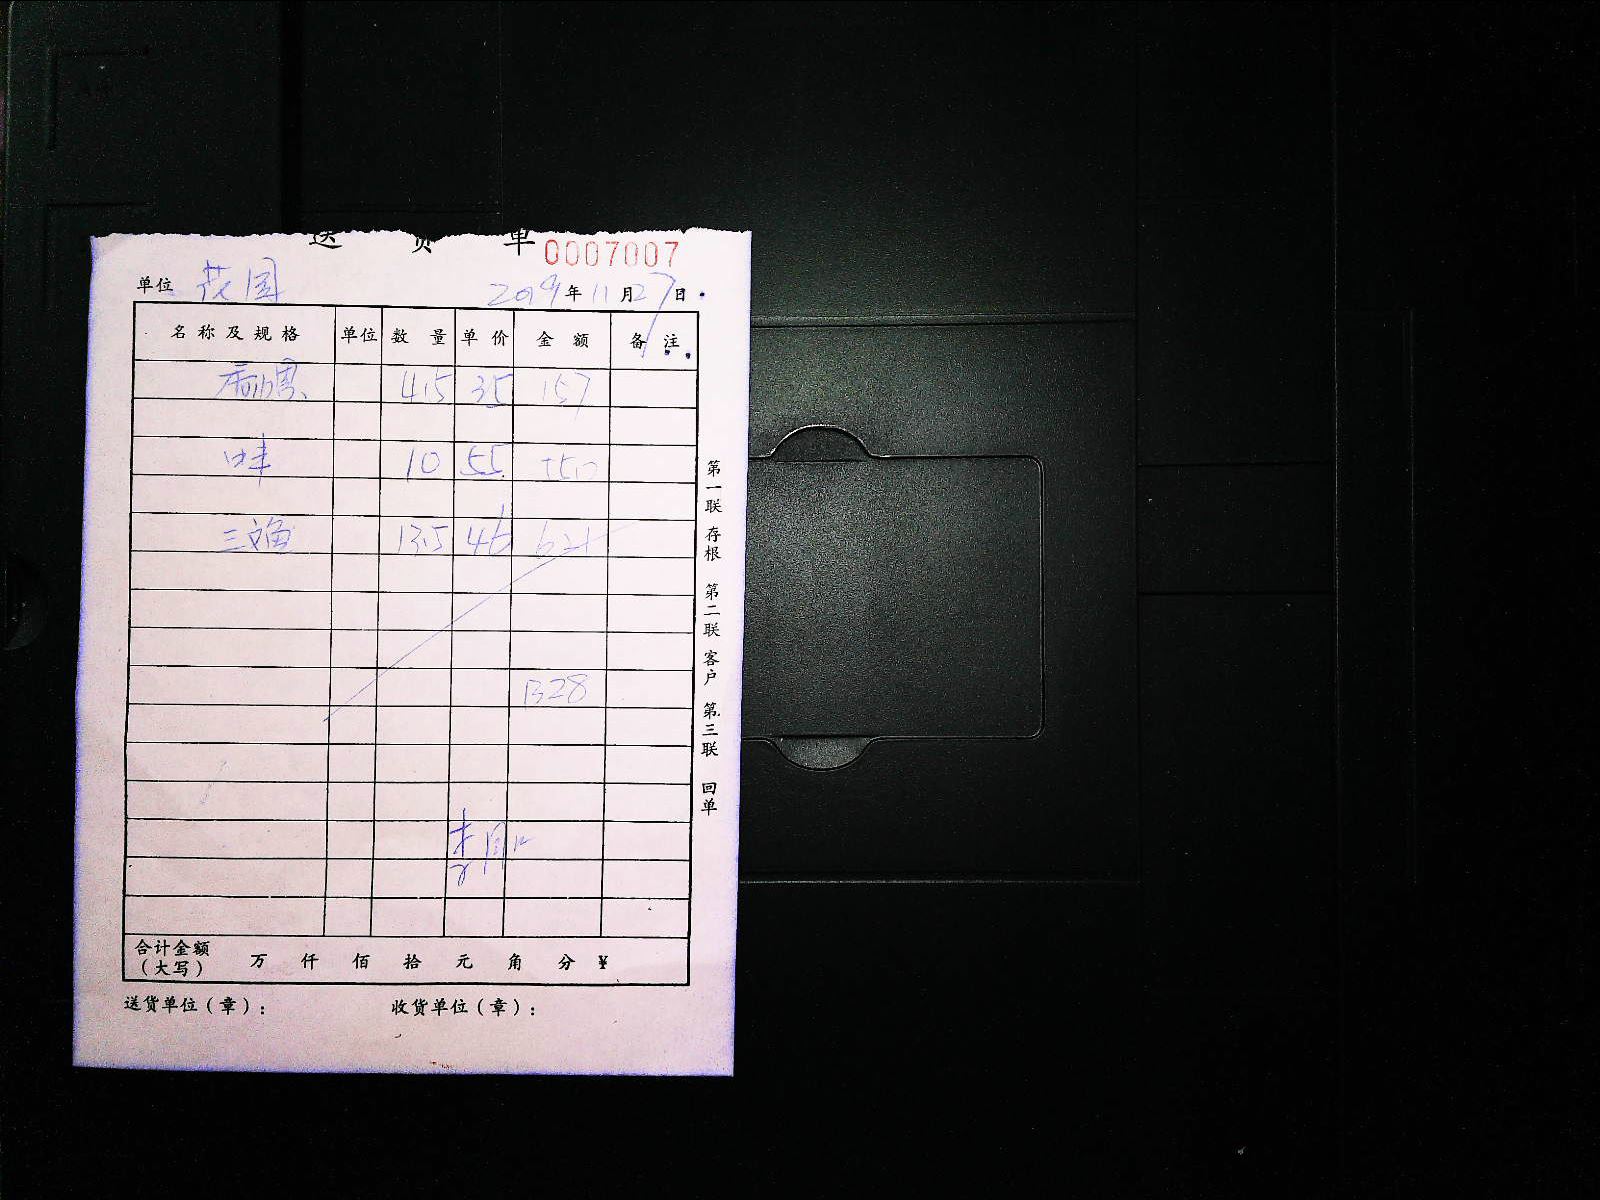 送 货 单 0007007
单位 花园 2019年11月27日
名称及规格 单位 数量 单价 金额 备注
4.5 35 157
蚌 10 55 550
三文鱼 13.5 46 621
1328
合计金额（大写） 万 仟 佰 拾 元 角 分 ¥
送货单位（章）： 收货单位（章）：
第一联 存根 第二联 客户 第三联 回单